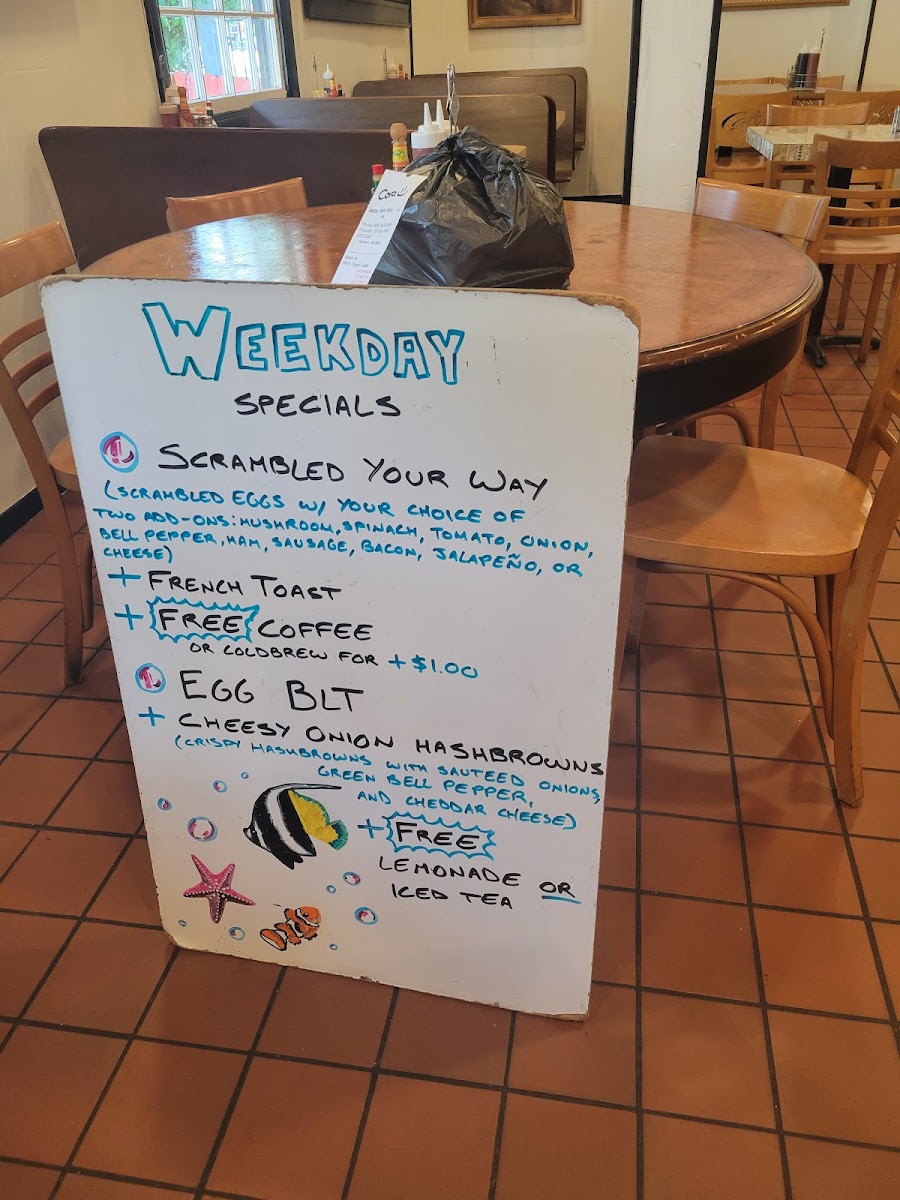 Coral
WEEKDAY
SPECIALS
SCRAMBLED YOUR WAY
(SCRAMBLED EGGS W/ YOUR CHOICE OF
TWO ADD-ONS: MUSHROOM, SPINACH, TOMATO, ONION,
BELL PEPPER, HAM, SAUSAGE, BACON, JALAPEÑO, OR
CHEESE)
+ FRENCH TOAST
+ FREE COFFEE
OR COLDBREW FOR + $1.00
EGG BLT
+ CHEESY ONION HASHBROWNS
(CRISPY HASHBROWNS WITH SAUTEED ONIONS,
GREEN BELL PEPPER,
AND CHEDDAR CHEESE)
+ FREE
LEMONADE OR
ICED TEA